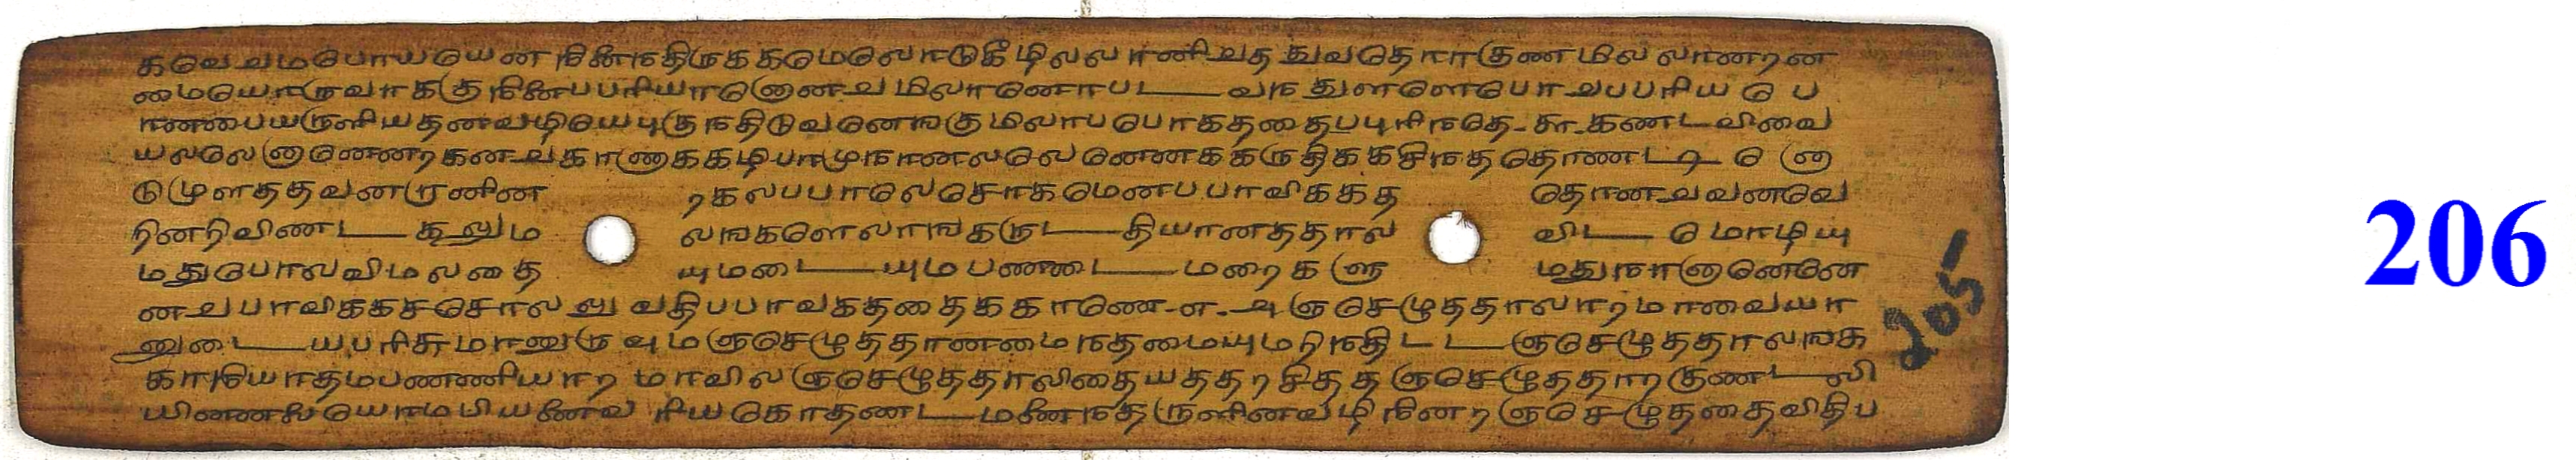 கவெவமபொயயென நினைநதிருககமெலொடுகீழிலலானிவததுவதொராகுணமிலலானறன
மையொருவாககுநினைபபரியாளெனவமிலானொபட வநதுளளெபொவபபரியபெ
ானபையருளியதனவழியெபுகுநதிடுவனெஙகுமிலாபபொகததைபபுரிநதெ-௬-கணடவிவை
யலலெனானெனறகனவகாணுககழிபரமுநானலலெனெனககருதிககசிநததொணட
டுமுளததவனறானின றகலபபாலெசொகமெனபபாவிககத தொனவவனவெ
றினறிவிணட கூலும லஙகளெலாஙகருட தியானததால விட மொழியு
மதுபொலவிமலதை யுமடையும பணடை மறைகளு மதுநானானெனெ
னவபாவிககசசொலலுவதிபபாவகததைககாணெ-௭-அஞசெழுததாலாறமாவையா
னுடையபரிசுமானுருவுமஞசெழுததானமைநதமையுமறிநதிடடஞசெழுததாலஙக
காநியாதமபணணியாறமாவிலஞசெழுததாலிதையததரசிததஞசெழுததாறகுணடலி
யினனலெயொமபியணைவரியகொதணடமணைநதருளினவழிநினறஞசெழுததைவிதிப
205
206